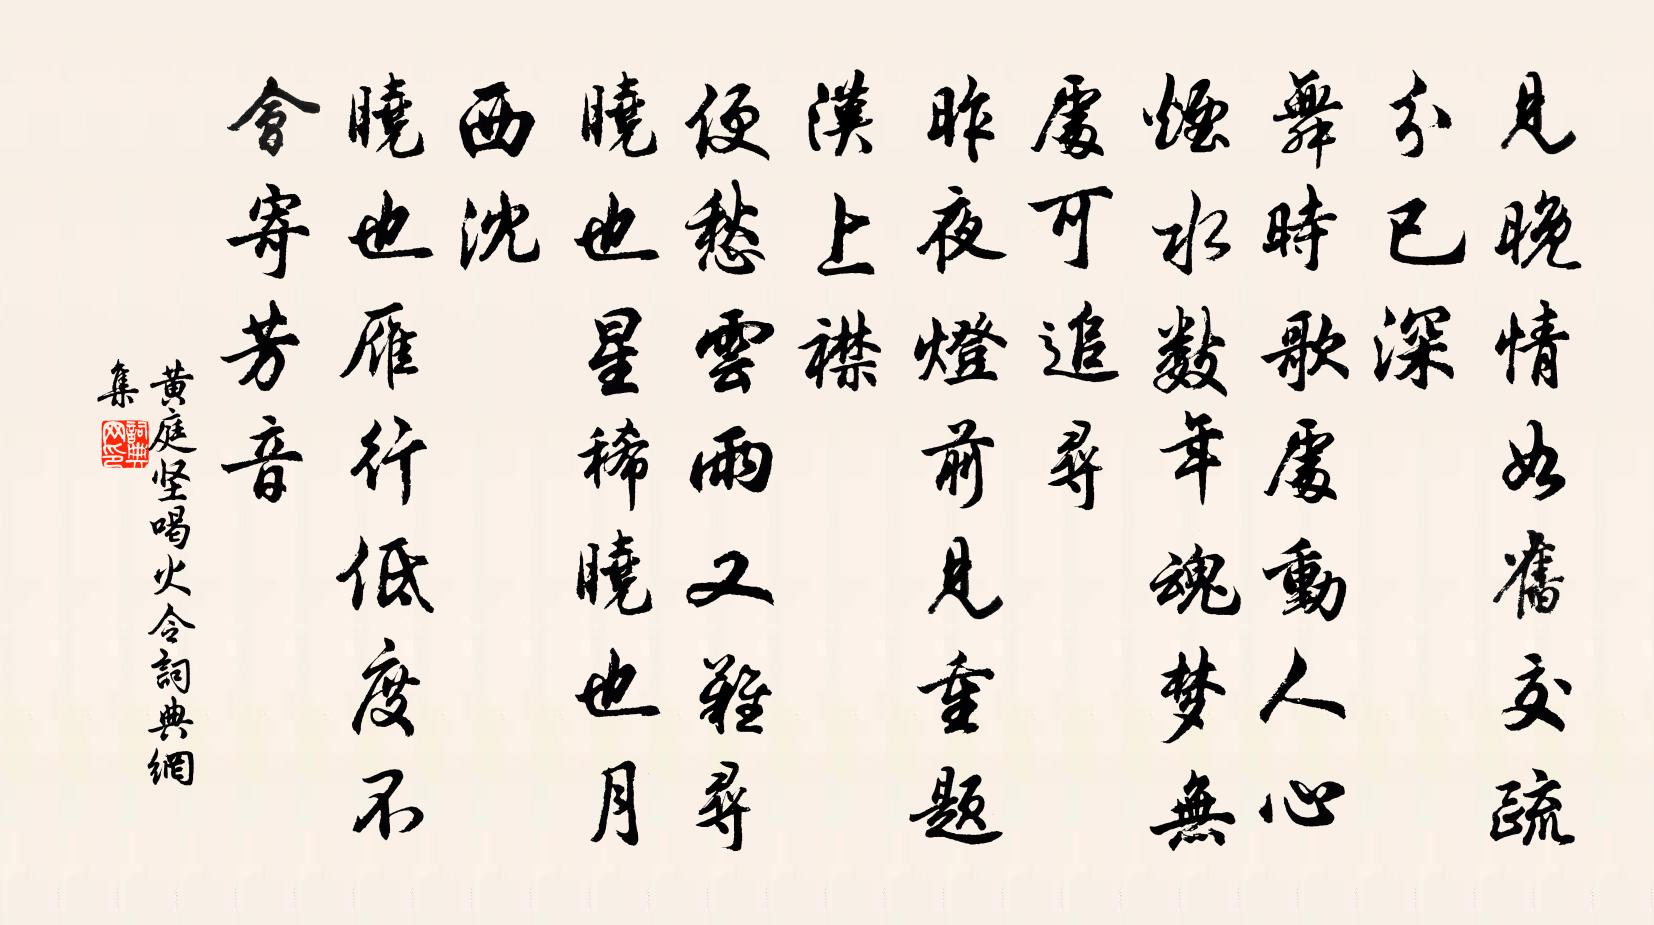 見晚情如舊交疏
分已深
舞時歌處動人心
煙水數年魂梦無
處可追尋
昨夜燈前見重題
漢上襟
便愁雲雨又難尋
曉也星稀曉也月
西沈
曉也雁行低度不
會寄芳音
黄庭坚喝火令詞典網
集
詞典
网印